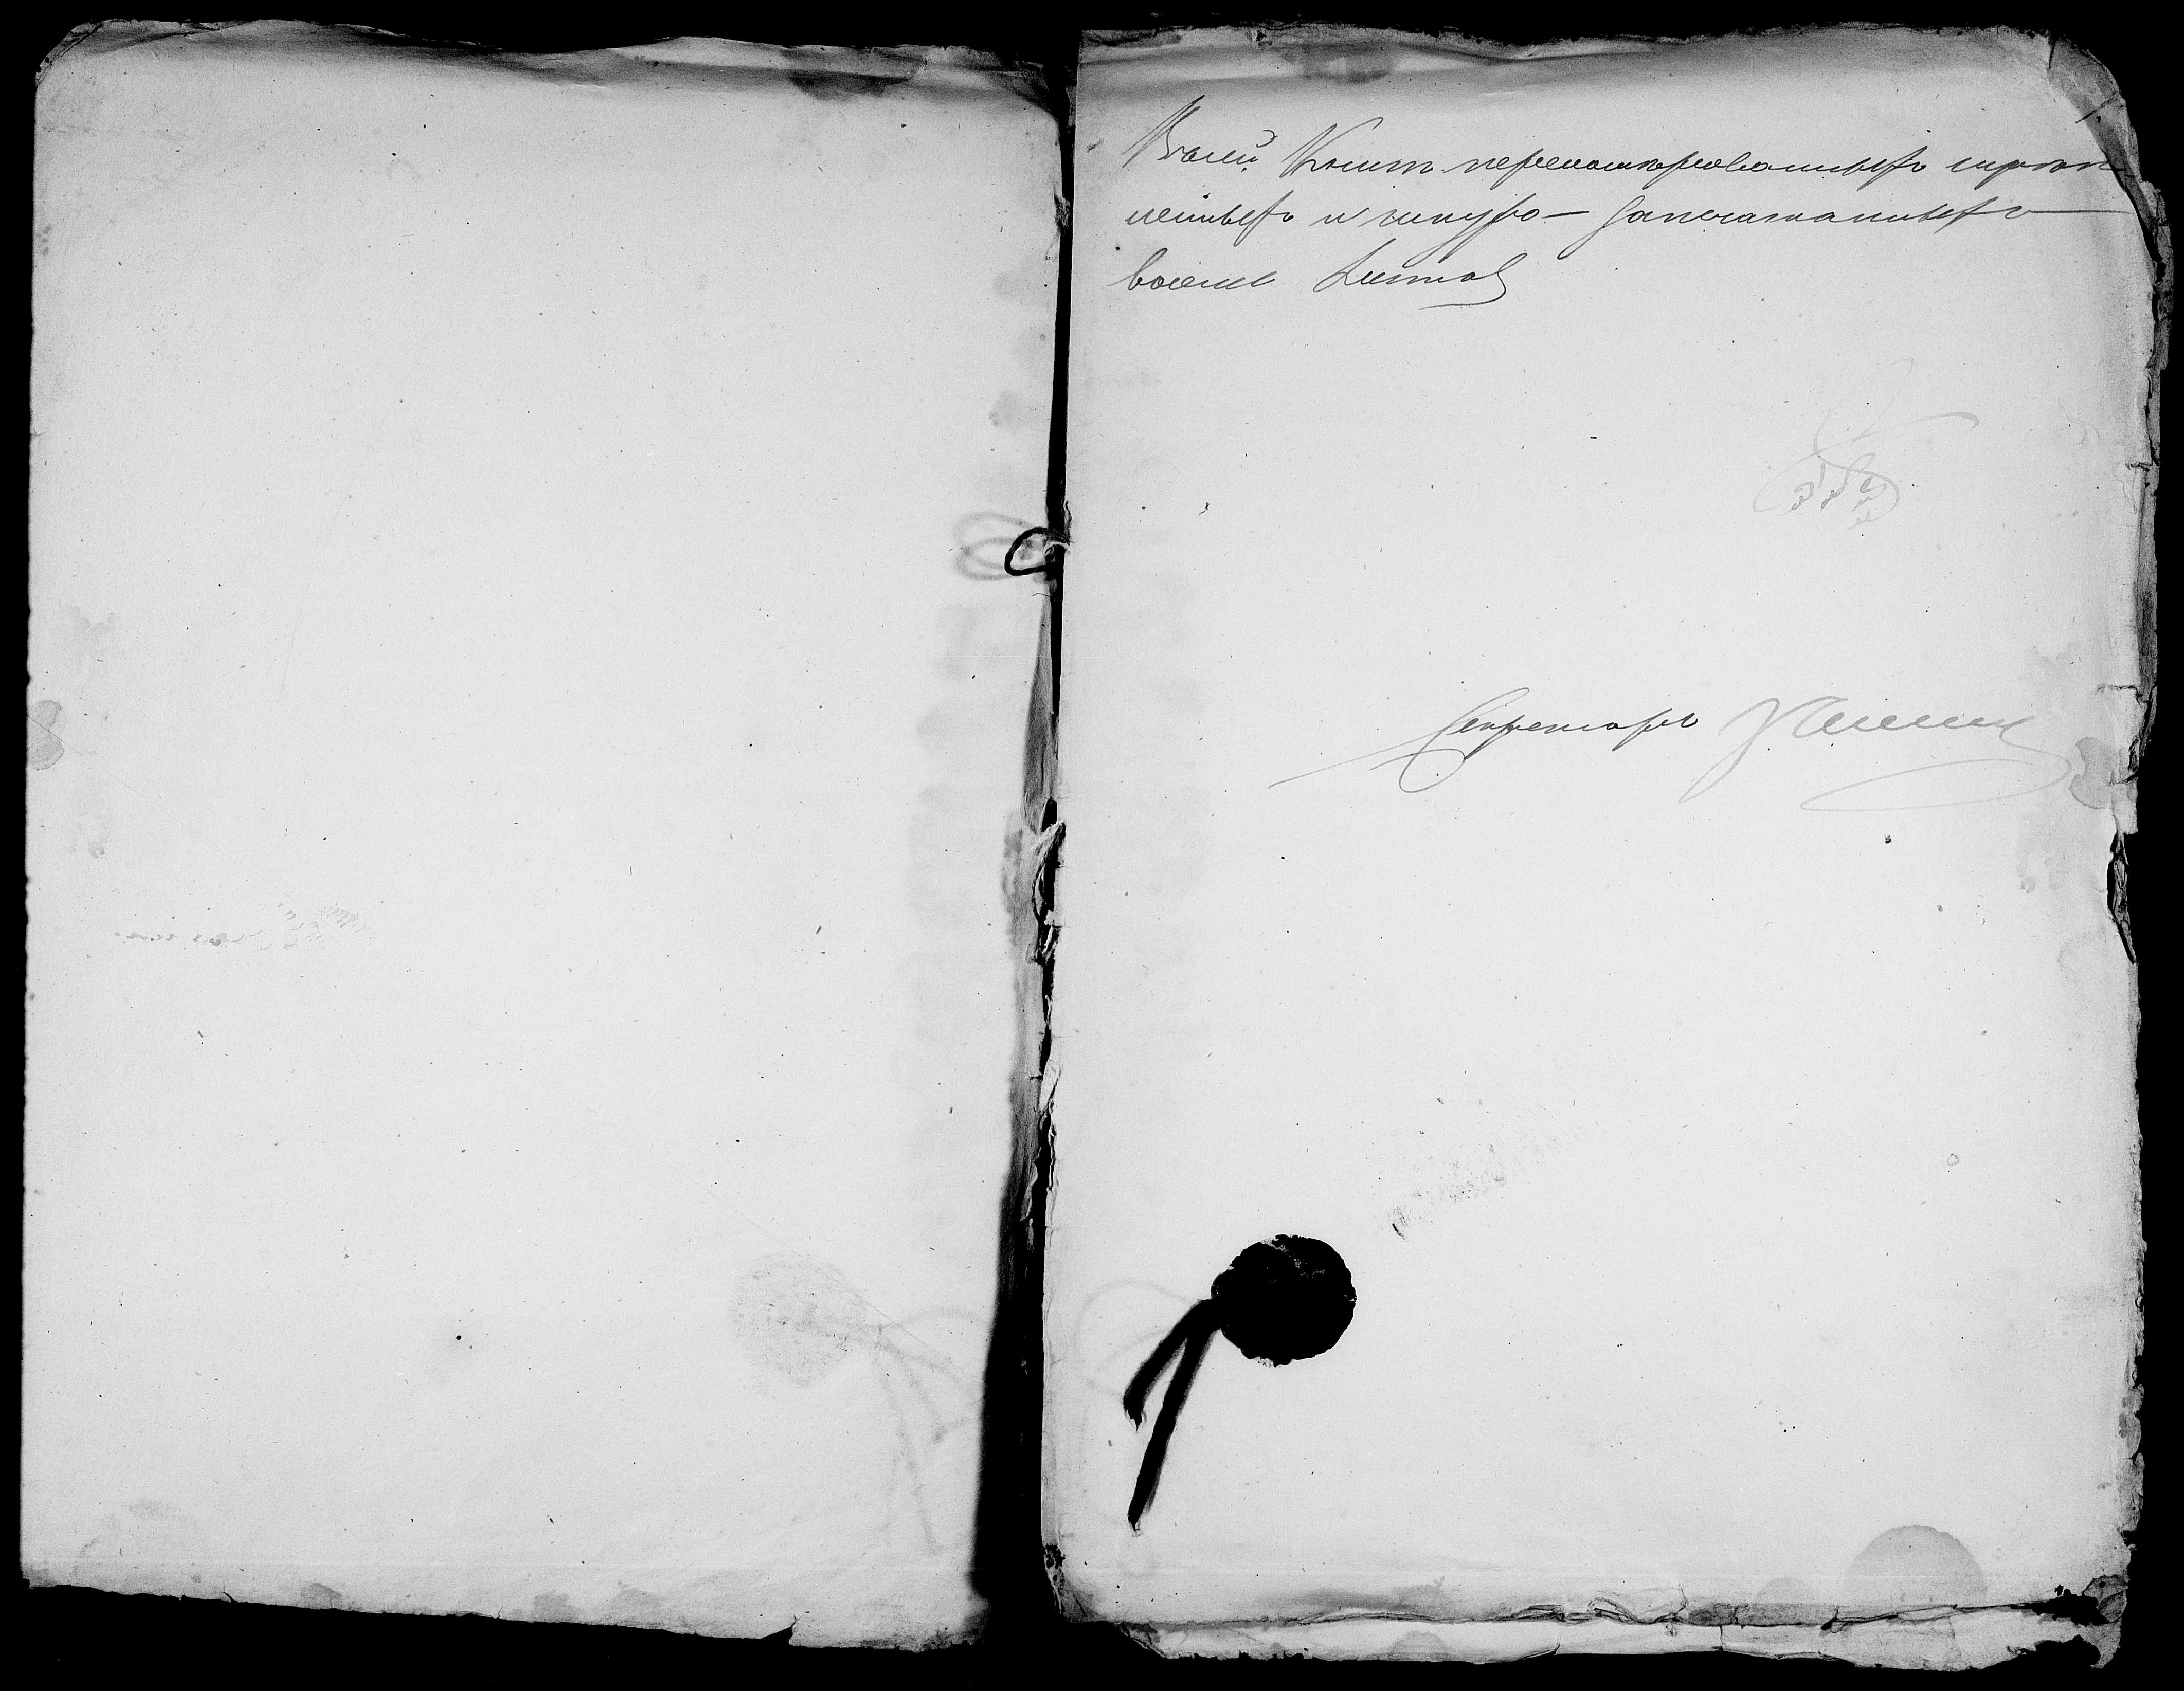 Въ сей Книгѣ перенумерованныхъ, скрѣп
ленныхъ и шнуро-запечатанныхъ
восемь листовъ
Секретарь